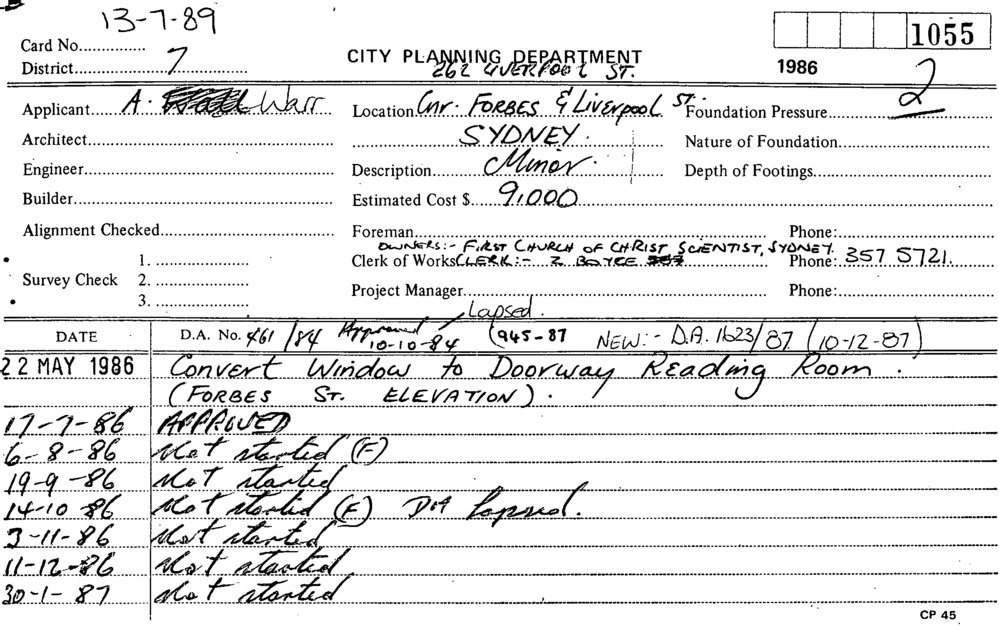 13-7-89
Card No.
1055
District 7
CITY PLANNING DEPARTMENT
1986
2
262 LIVERPOOL ST.
Applicant A. Warr
Location Cnr. FORBES & Liverpool ST.
Foundation Pressure
Architect
SYDNEY.
Nature of Foundation
Engineer
Description Minor.
Depth of Footings
Builder
Estimated Cost $ 9,000
Alignment Checked
Foreman
Phone:
OWNERS:- FIRST CHURCH OF CHRIST SCIENTIST, SYDNEY.
Survey Check 1.
Clerk of Works CLERK:- Z BOYCE
Phone: 357 5721.
2.
3.
Project Manager
Phone:
Lapsed.
DATE D.A. No. 461/84 Approved 10-10-84 (945-87 NEW:- D.A. 1623/87 (10-12-87)
22 MAY 1986 Convert Window to Doorway Reading Room.
(FORBES ST. ELEVATION).
17-7-86 APPROVED
6-8-86 Not started (F)
19-9-86 Not started
14-10-86 Not started (F) DA lapsed.
3-11-86 Not started
11-12-86 Not started
30-1-87 Not started
CP 45